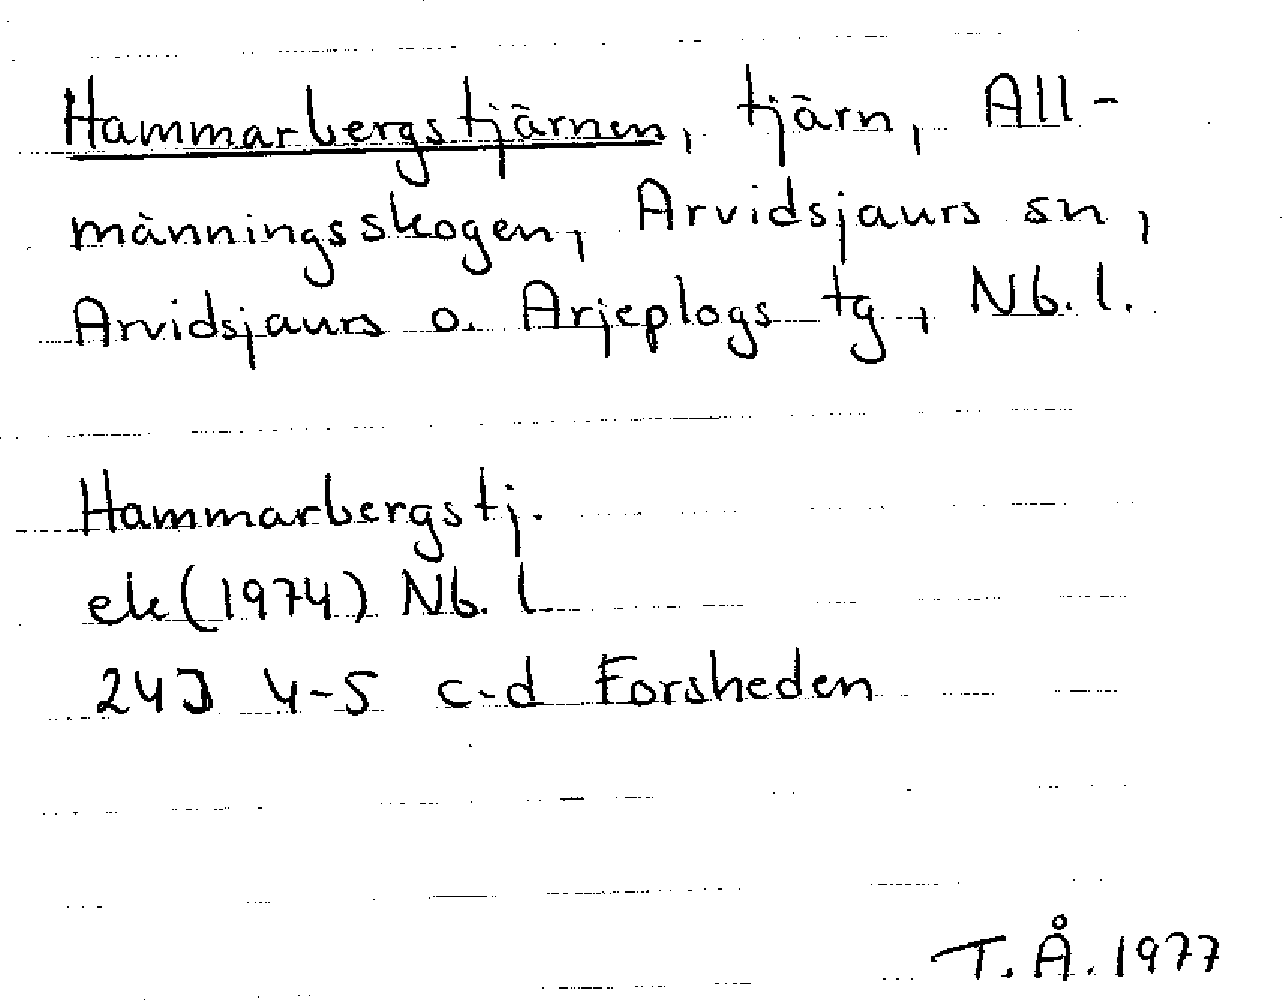 Hammarbergstjärnen, tjärn, All-
männingsskogen, Arvidsjaurs sn,
Arvidsjaurs o. Arjeplogs tg, Nb. l.
Hammarbergstj.
ek (1974) Nb. l
24J 4-5 c-d Forsheden
T. Å. 1977